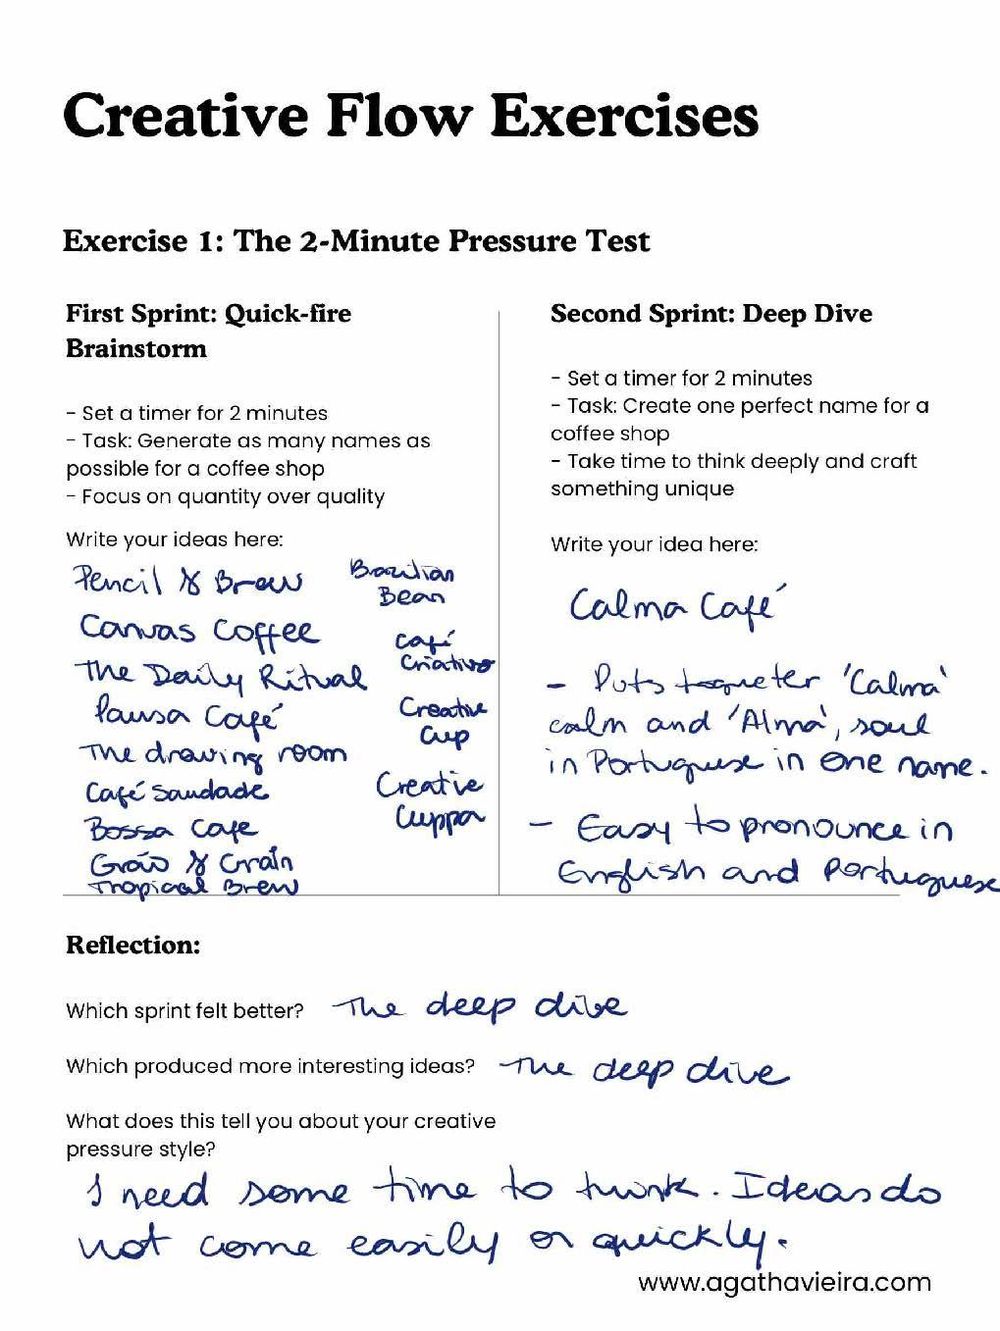 Creative Flow Exercises
Exercise 1: The 2-Minute Pressure Test
First Sprint: Quick-fire
Brainstorm
- Set a timer for 2 minutes
- Task: Generate as many names as
possible for a coffee shop
- Focus on quantity over quality
Write your ideas here:
Pencil & Brew
Canvas Coffee
The Daily Ritual
Pausa Café
The drawing room
Café Saudade
Bossa Cafe
Grão & Grain
Tropical Brew
Brazilian
Bean
Café
Criativo
Creative
Cup
Creative
Cuppa
Second Sprint: Deep Dive
- Set a timer for 2 minutes
- Task: Create one perfect name for a
coffee shop
- Take time to think deeply and craft
something unique
Write your idea here:
Calma Café
- Puts together 'Calma'
calm and 'Alma', soul
in Portuguese in one name.
- Easy to pronounce in
English and Portuguese
Reflection:
Which sprint felt better? The deep dive
Which produced more interesting ideas? The deep dive
What does this tell you about your creative
pressure style?
I need some time to think. Ideas do
not come easily or quickly.
www.agathavieira.com